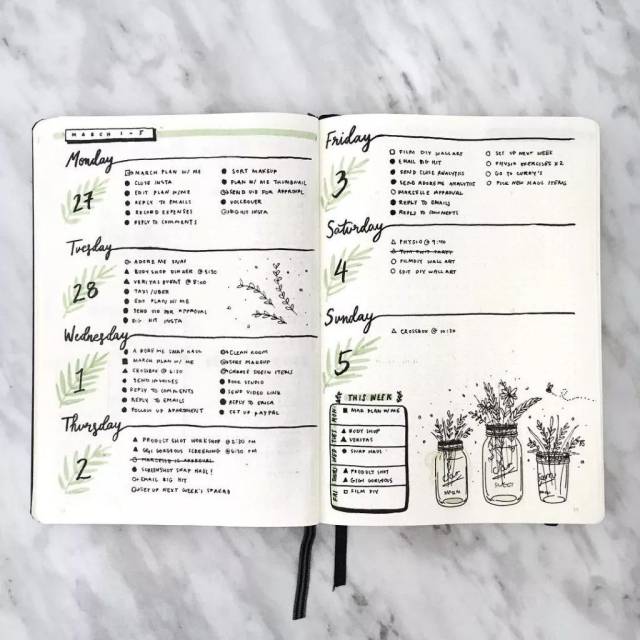 MARCH 1 - 5
Monday
27
MARCH PLAN W/ ME
CLUSE INSTA
EDIT PLAN W/ME
REPLY TO EMAILS
RECORD EXPENSES
REPLY TO COMMENTS
SORT MAKEUP
PLAN W/ ME THUMBNAIL
SEND VID FOR APPROVAL
VOICEOVER
BIG HIT INSTA
Tuesday
28
ADORE ME SNAP
BODY SHOP DINNER @ 5:30
VERITAS EVENT @ 8:00
TAXI/UBER
EDIT PLAN W/ ME
SEND VID FOR APPROVAL
BIG HIT INSTA
Wednesday
1
ADORE ME SNAP HAUL
MARCH PLAN W/ ME
CROSSBOX @ 6:30
SEND INVOICES
REPLY TO COMMENTS
REPLY TO EMAILS
FOLLOW UP APARTMENT
CLEAN ROOM
STORE MAKEUP
CHANGE SHEIN ITEMS
BOOK STUDIO
SEND VIDEO LINK
REPLY TO ERICA
SET UP PAYPAL
Thursday
2
PRODUCT SHOT WORKSHOP @ 2:30 PM
GIGI GORGEOUS SCREENING @ 6:30 PM
MARCELLE IG APPROVAL
SCREENSHOT SNAP HAUL!
EMAIL BIG HIT
SET UP NEXT WEEK'S SPREAD
Friday
3
FILM DIY WALL ART
EMAIL BIG HIT
SEND CLUSE ANALYTICS
SEND ADOREME ANALYTICS
MARCELLE APPROVAL
REPLY TO EMAILS
REPLY TO COMMENTS
SET UP NEXT WEEK
PHYSIO EXERCISES X2
GO TO CURRY'S
PICK NEW MAGS ITEMS
Saturday
4
PHYSIO @ 9:40
FILM DIY WALL ART
EDIT DIY WALL ART
Sunday
5
CROSSBOX @ 10:30
THIS WEEK
MON
MAR PLAN W/ME
TUES
BODY SHOP
VERITAS
WED
SNAP HAUL
THUR
PRODUCT SHOT
GIGI GORGEOUS
FRI
FILM DIY